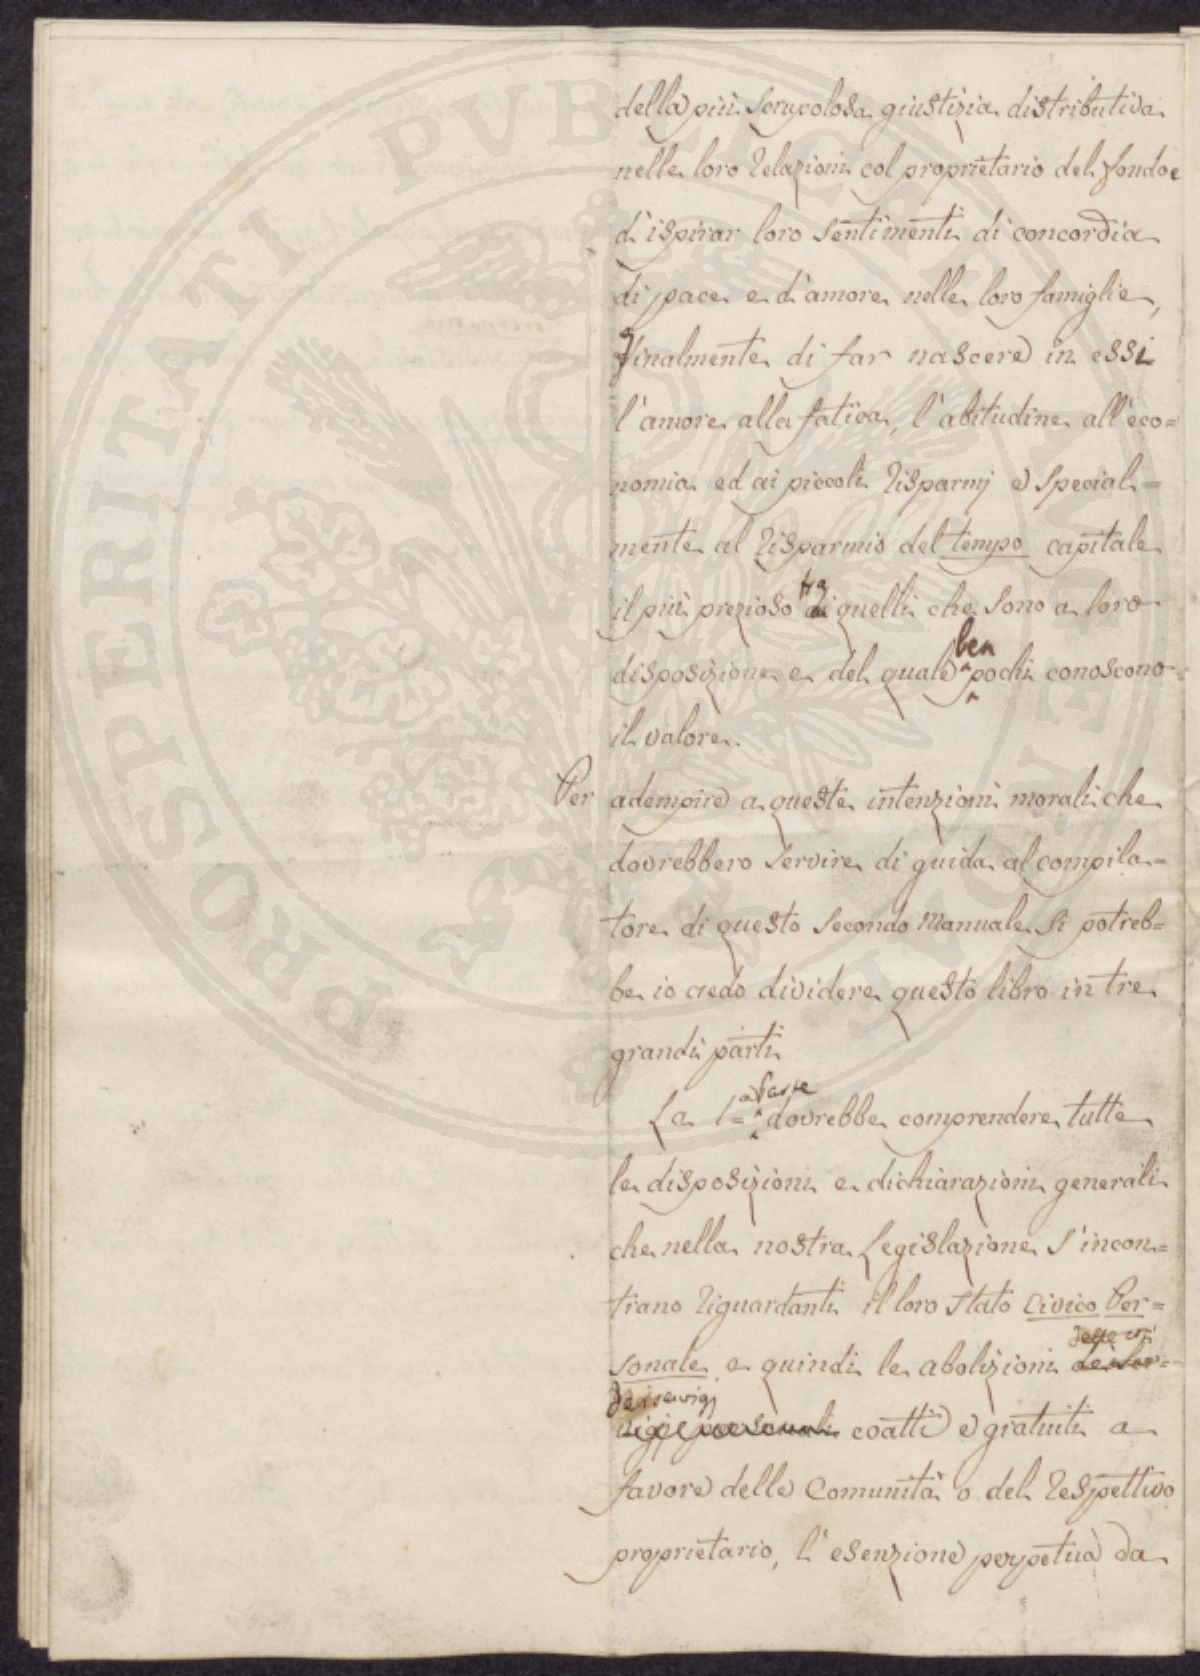 della più scrupolosa giustizia distributiva
nelle loro relazioni col proprietario del fondo e
d'ispirar loro sentimenti di concordia
di pace e d'amore nelle loro famiglie,
finalmente di far nascere in essi
l'amore alla fatica, l'abitudine all'eco=
nomia ed ai piccoli risparmj e special=
mente al risparmio del tempo capitale
il più prezioso tra quelli che sono a loro
disposizione e del quale ben pochi conoscono
il valore.
Per adempire a queste intenzioni morali che
dovrebbero servire di guida al compila=
tore di questo secondo Manuale si potreb=
be io credo dividere questo libro in tre
grandi parti
La 1=a Parte dovrebbe comprendere tutte
le disposizioni e dichiarazioni generali
che nella nostra Legislazione s'incon=
trano riguardanti il loro stato Civico Per=
sonale, e quindi le abolizioni
dei servigj coatti e gratuiti a
favore delle Comunità o del respettivo
proprietario, l'esenzione perpetua da
PROSPERITATI PVBLICAE